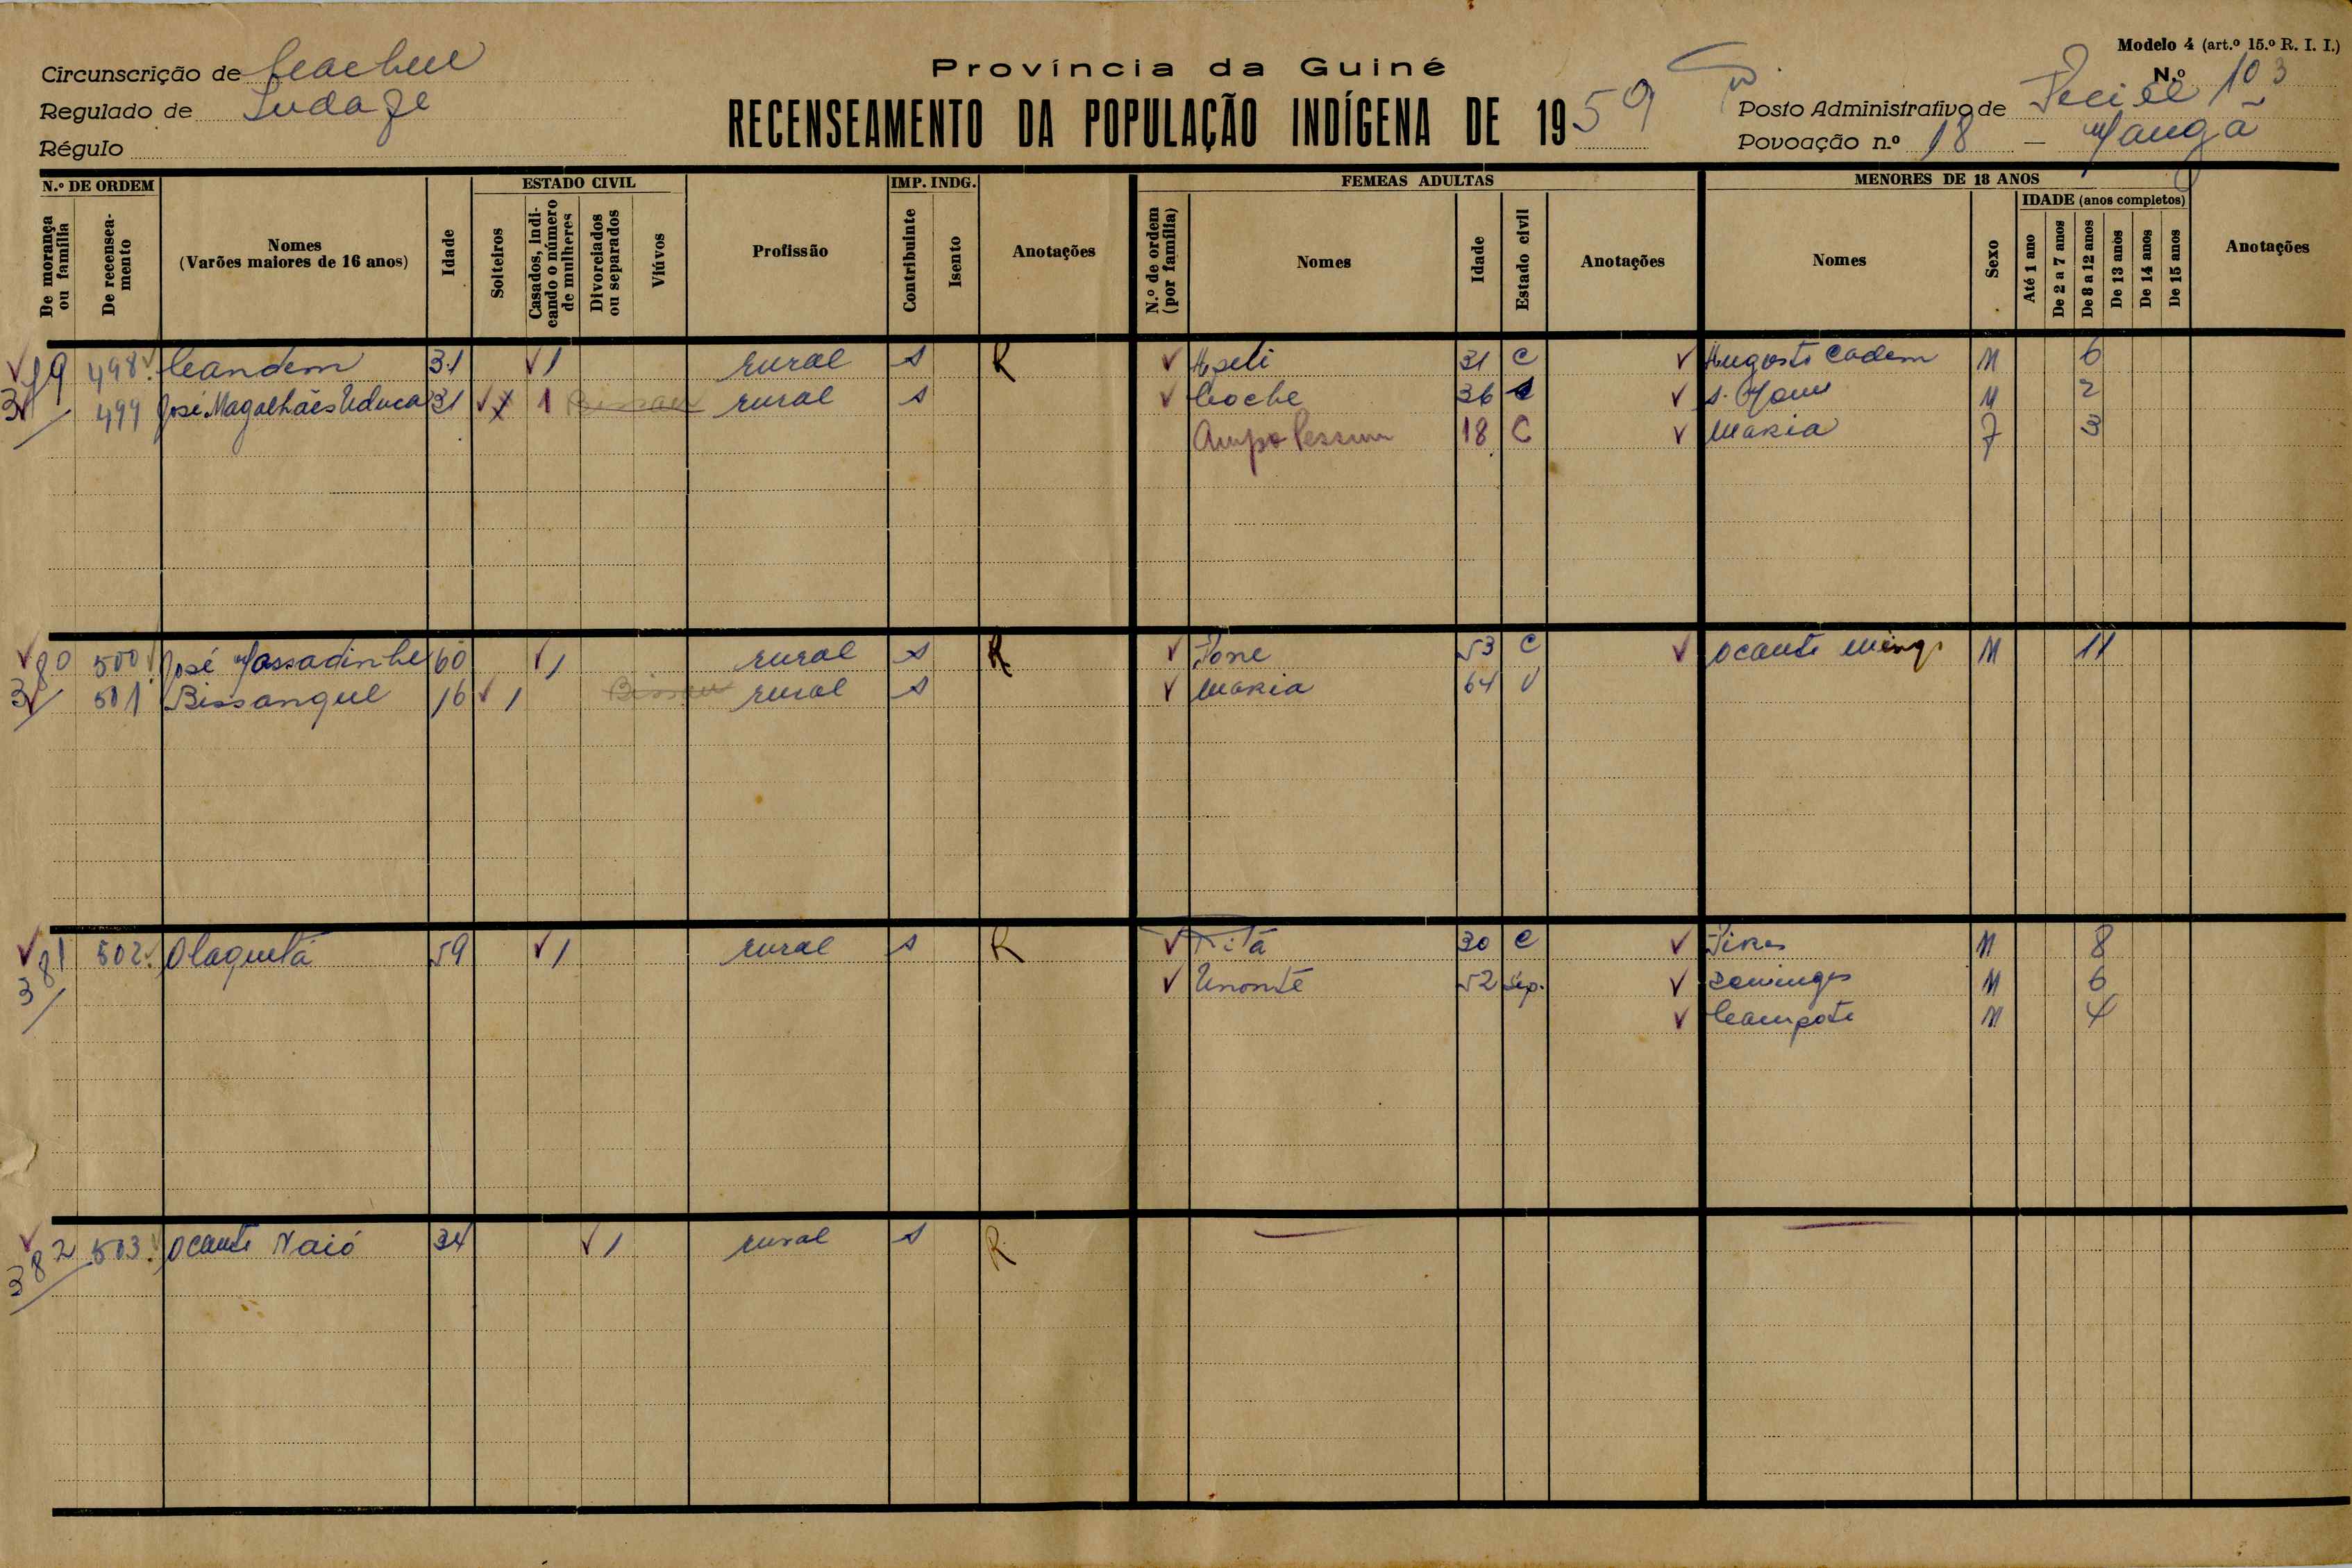 Modelo 4 (art.º 15.º R. I. I.)
Circunscrição de Cacheu
Província da Guiné
N.º 103
Regulado de
RECENSEAMENTO DA POPULAÇÃO INDÍGENA DE 1959
Posto Administrativo de
Régulo
Povoação n.º 18 –
N.º DE ORDEM
ESTADO CIVIL
IMP. INDG.
FEMEAS ADULTAS
MENORES DE 18 ANOS
De morança ou família
De recenseamento
Nomes
(Varões maiores de 16 anos)
Idade
Solteiros
Casados, indicando o número de mulheres
Divorciados ou separados
Viúvos
Profissão
Contribuinte
Isento
Anotações
N.º de ordem (por família)
Nomes
Idade
Estado civil
Anotações
Nomes
Sexo
IDADE (anos completos)
Até 1 ano
De 2 a 7 anos
De 8 a 12 anos
De 13 anos
De 14 anos
De 15 anos
Anotações
379 498 Candem 31 1 rural s R Apeli 31 C Augosto Cadem M 6
499 José Magalhães 31 1 Bissau rural s Coche 36 M 2
Ampo Pessum 18 C Maria 7 3
380 500 José 60 1 rural s R 53 C Ocante M 11
501 Bissanque 16 1 Bissau rural s Maria 64 V
381 502 Olaquetá 59 1 rural s R 30 C M 8
52 Sep. Domingos M 6
Campote M 4
382 503 Ocante Naió 34 1 rural s R